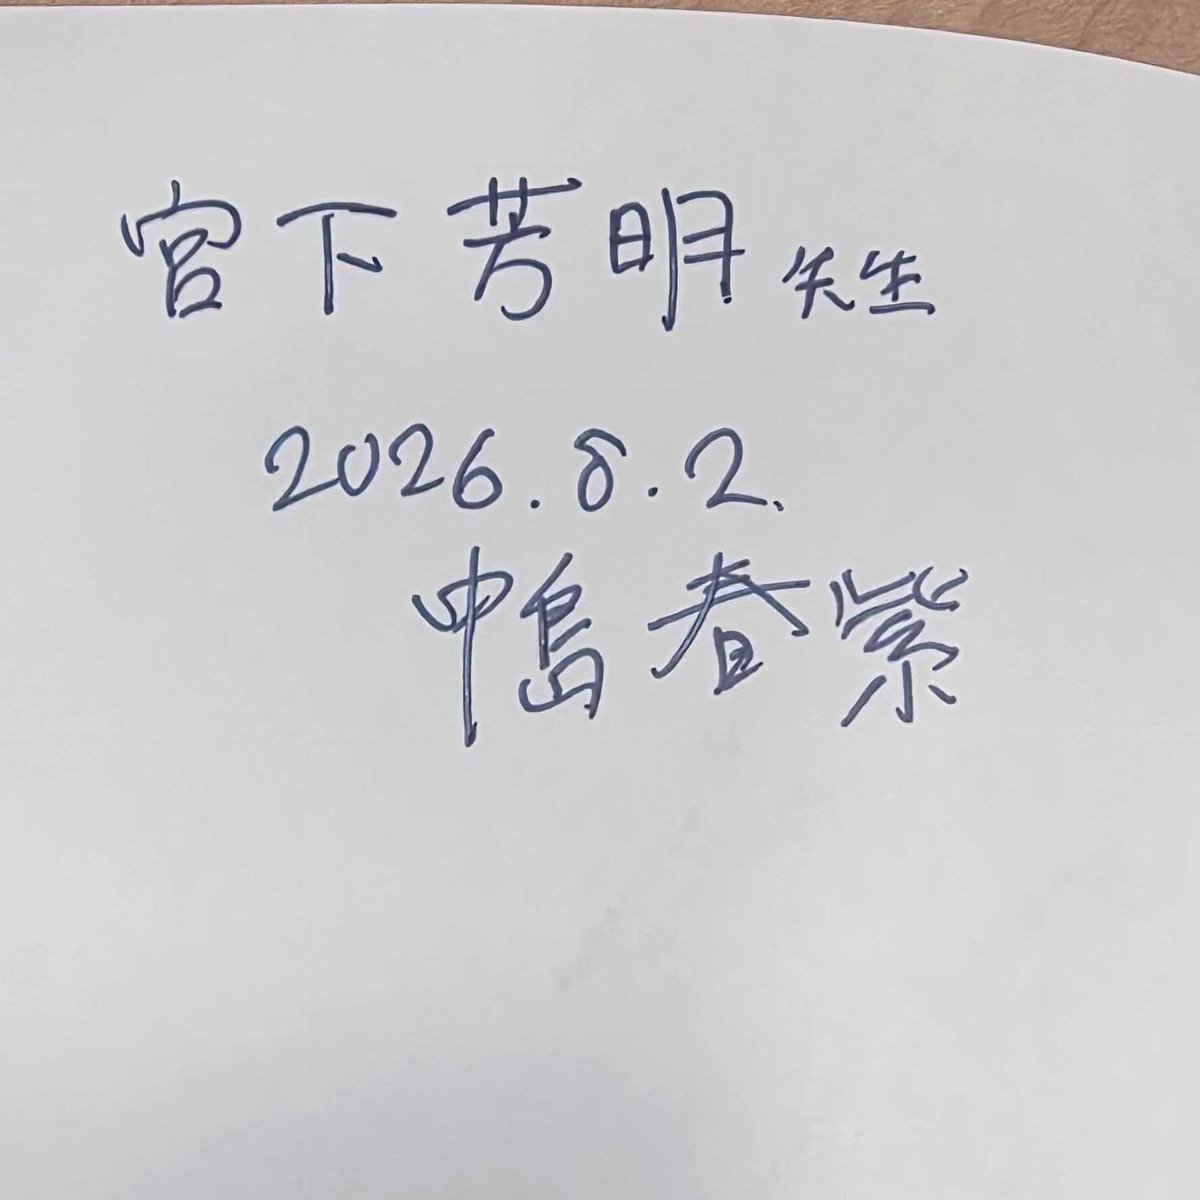 宮下芳明先生
2026.8.2.
鴨春紫